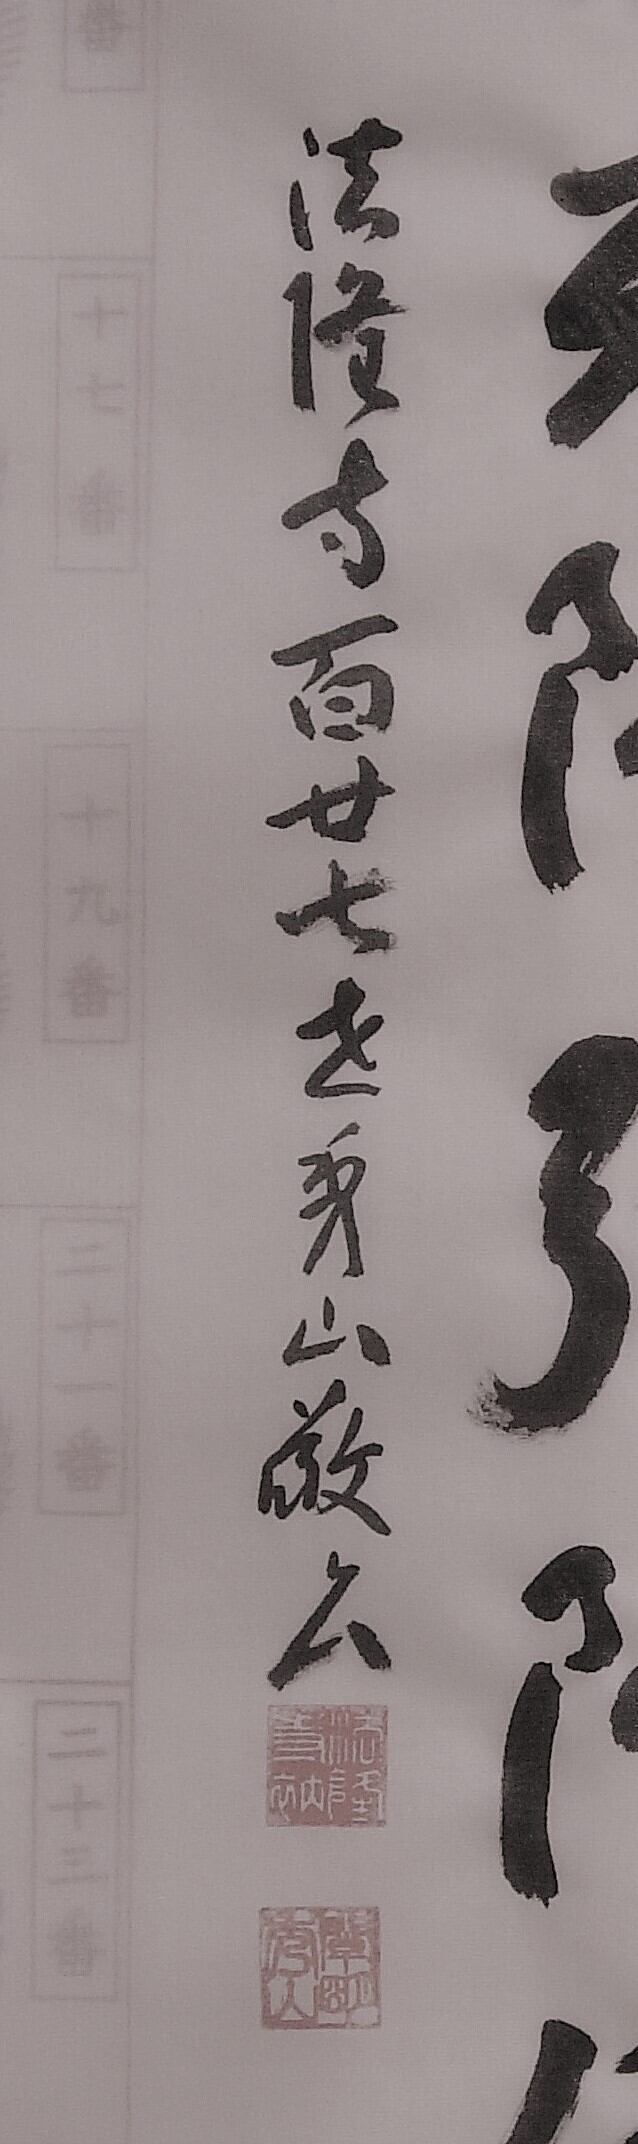 阿弥陀
法隆寺百廿七世秀山敬
番
十七番
十九番
二十一番
二十三番